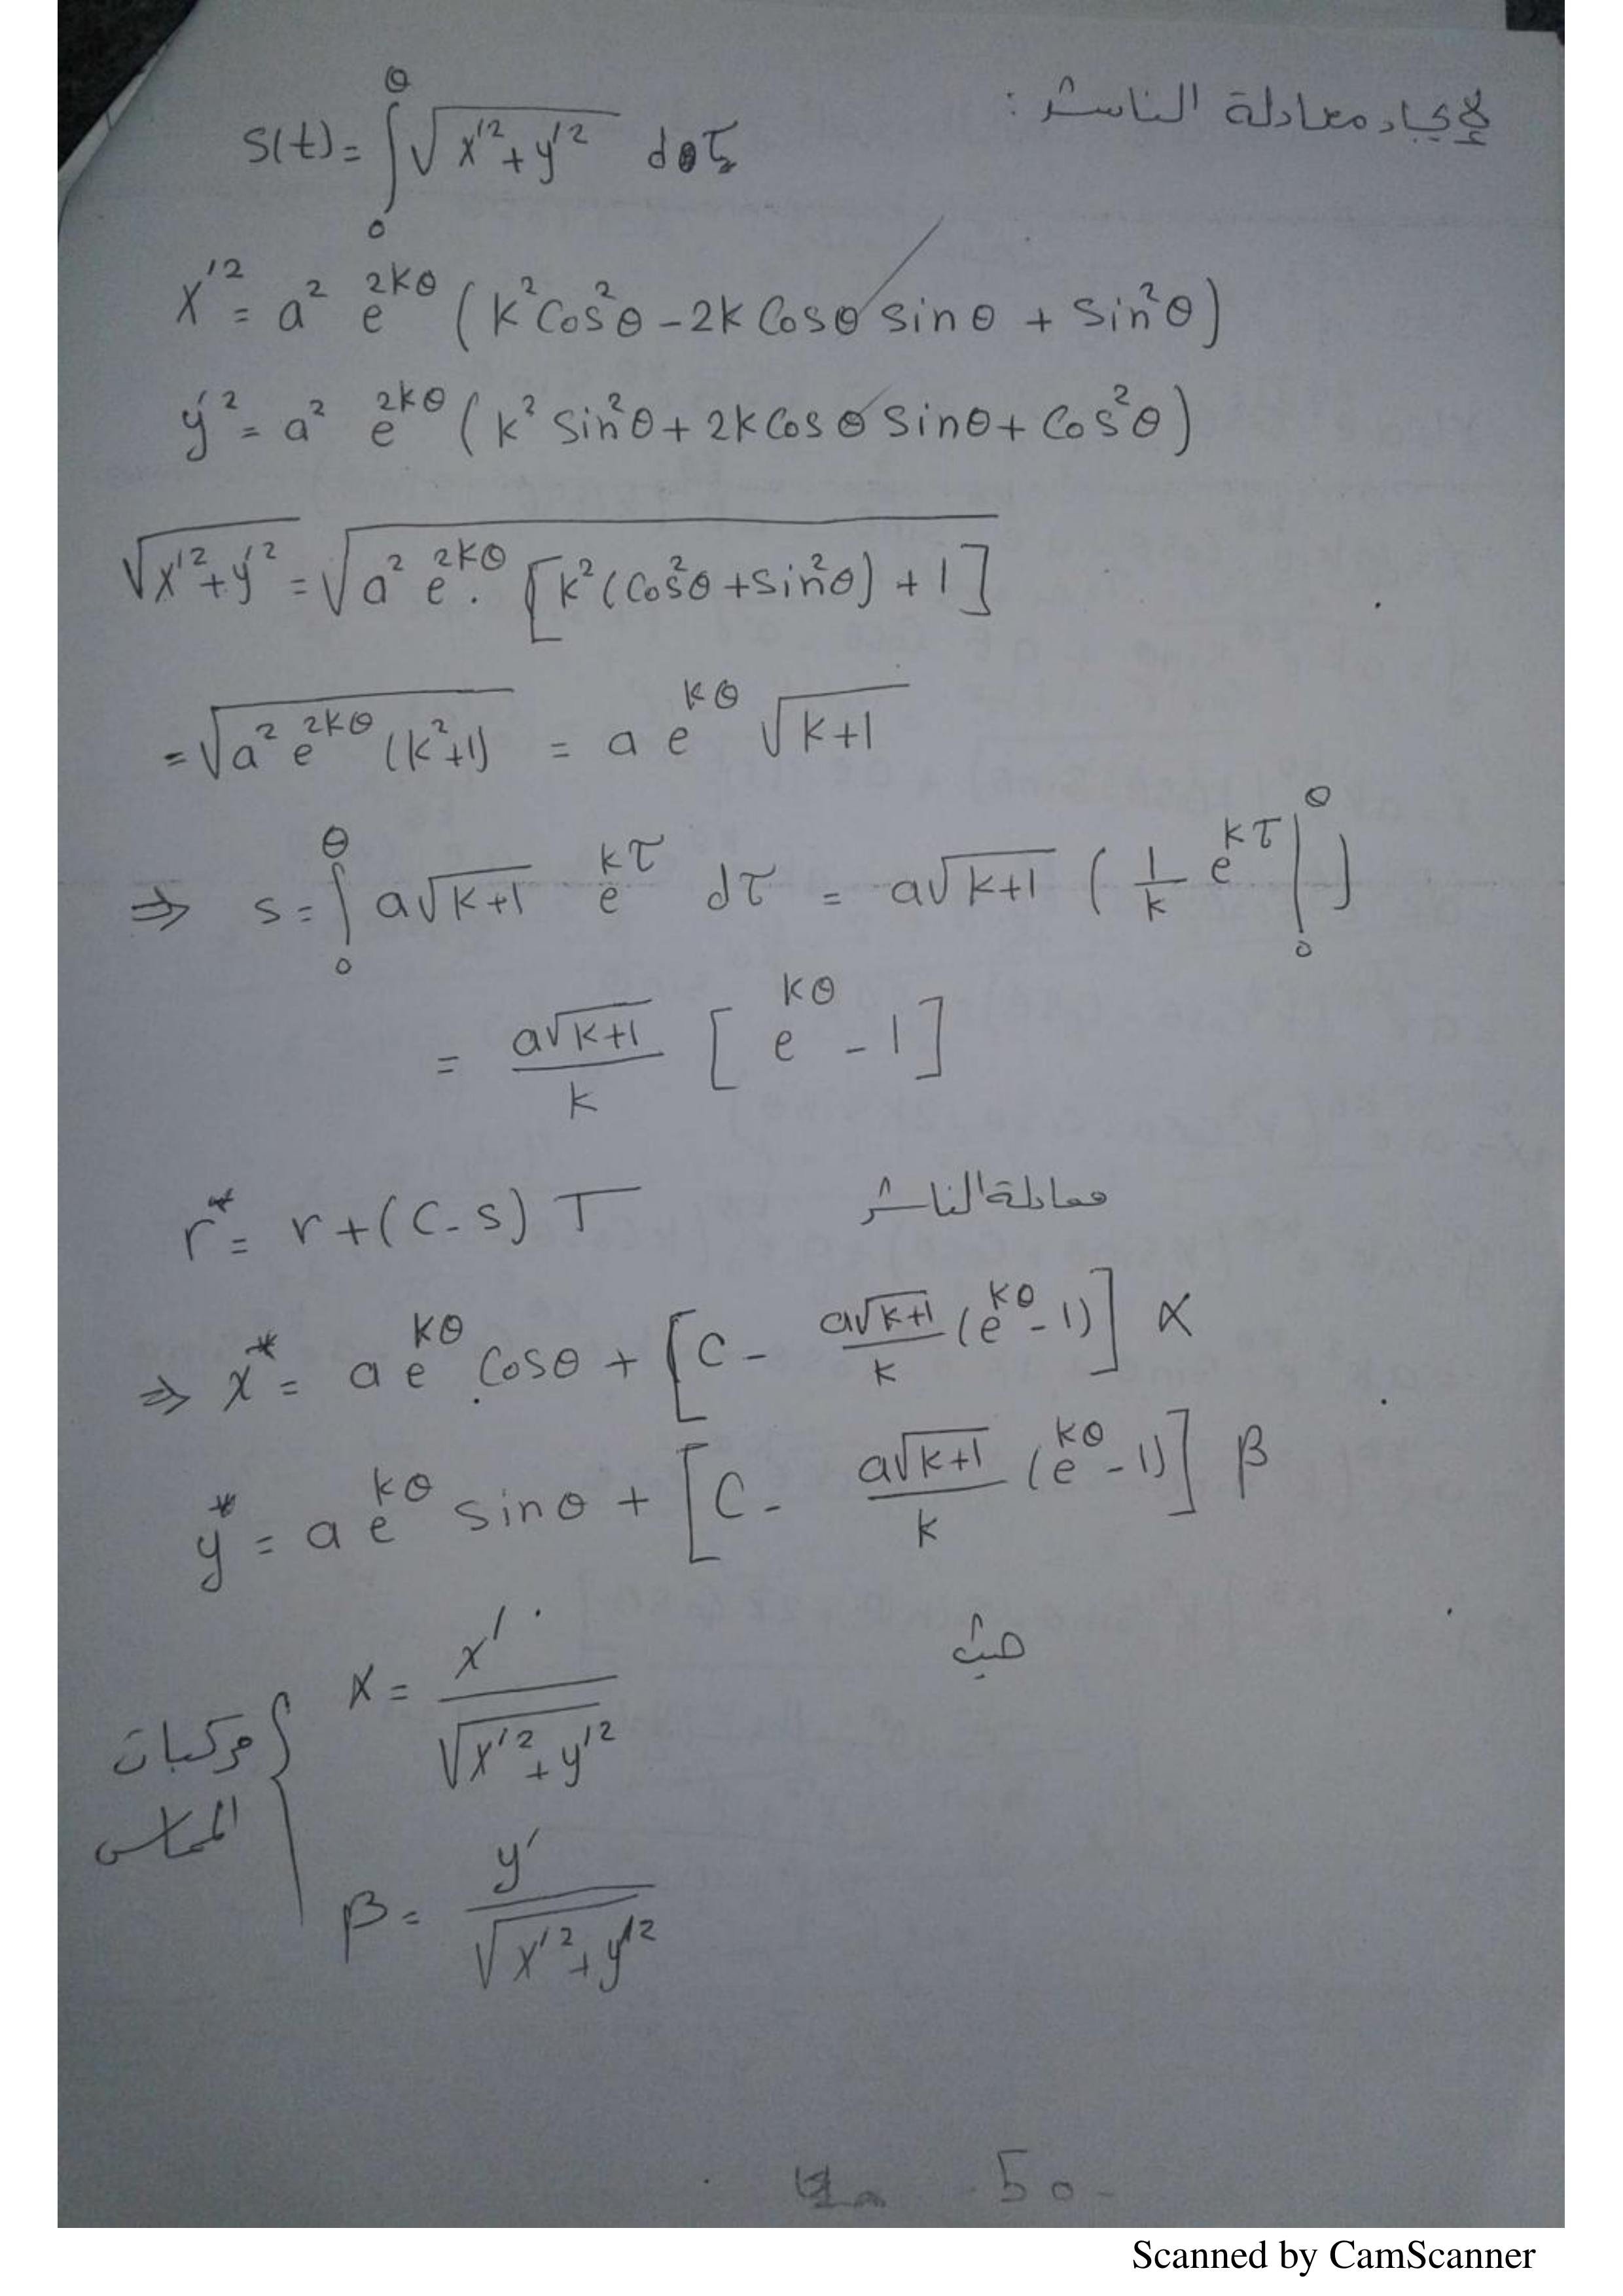 لإيجاد معادلة الناشر :
S(t) = ∫₀^θ √(x'² + y'²) dτ
x'² = a² e^{2kθ} (k² Cos²θ - 2k Cosθ Sinθ + Sin²θ)
y'² = a² e^{2kθ} (k² Sin²θ + 2k Cosθ Sinθ + Cos²θ)
√(x'² + y'²) = √(a² e^{2kθ} · [k² (Cos²θ + Sin²θ) + 1])
= √(a² e^{2kθ} (k²+1)) = a e^{kθ} √(k+1)
⇒ s = ∫₀^θ a√(k+1) e^{kτ} dτ = a√(k+1) ( 1/k e^{kτ} |₀^θ )
= a√(k+1)/k [ e^{kθ} - 1 ]
r* = r + (C - S) T معادلة الناشر
⇒ x* = a e^{kθ} Cosθ + [C - a√(k+1)/k (e^{kθ} - 1)] α
y* = a e^{kθ} Sinθ + [C - a√(k+1)/k (e^{kθ} - 1)] β
حيث
مركبات المماس { α = x'/√(x'² + y'²)
β = y'/√(x'² + y'²)
- 50 -
Scanned by CamScanner